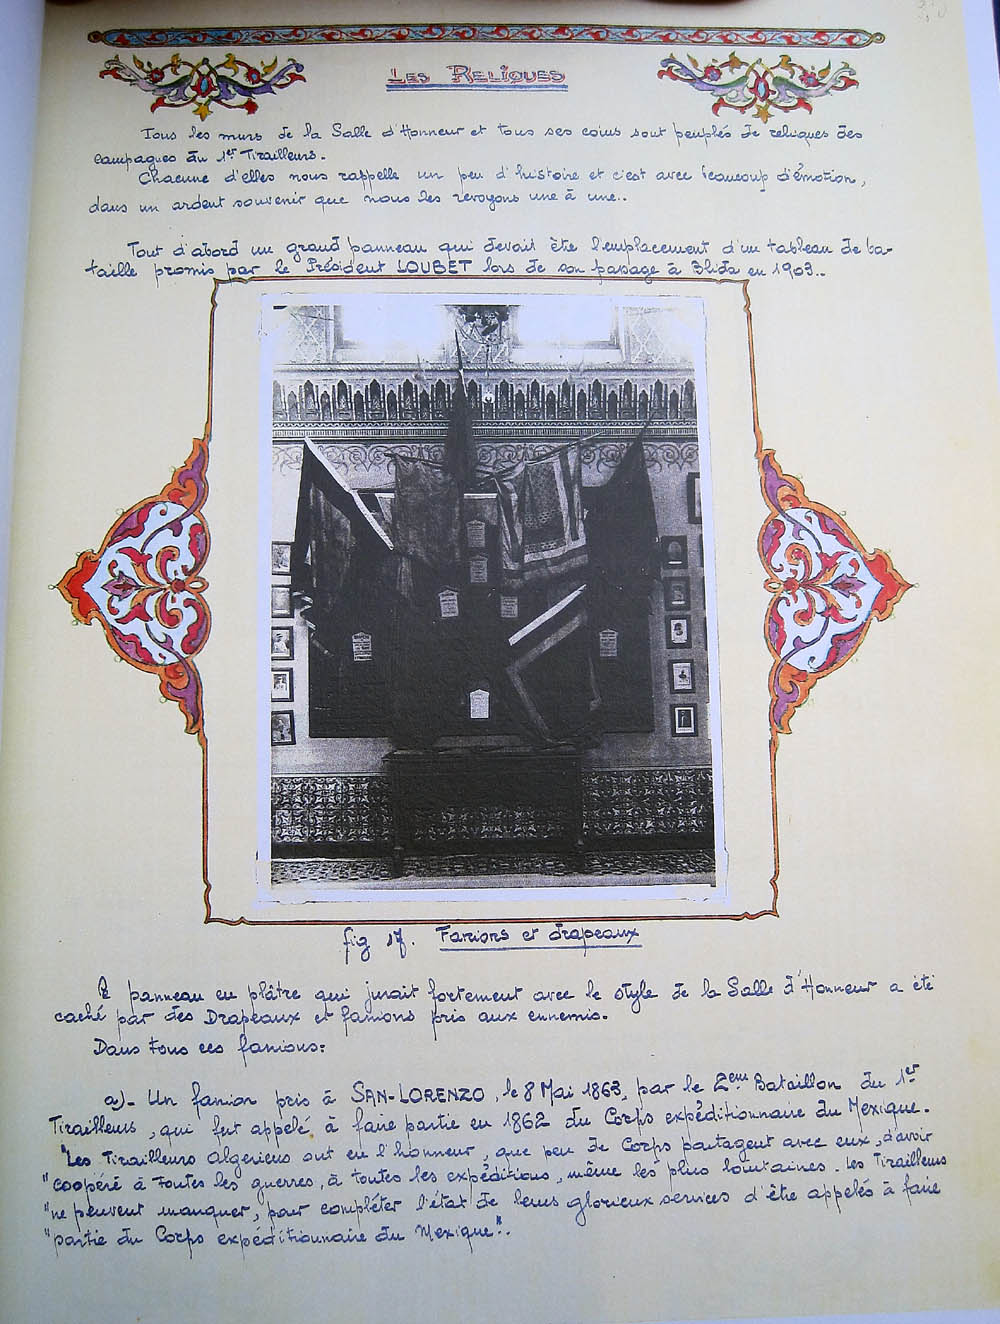 Les Reliques
Tous les murs de la Salle d'Honneur et tous ses coins sont peuplés de reliques des
campagnes du 1er Tirailleurs.
Chacune d'elles nous rappelle un peu d'histoire et c'est avec beaucoup d'émotion,
dans un ardent souvenir que nous les revoyons une à une..
Tout d'abord un grand panneau qui devait être l'emplacement d'un tableau de ba-
taille promis par le Président LOUBET lors de son passage à Blida en 1903..
fig 17. Fanions et drapeaux
Ce panneau en plâtre qui jurait fortement avec le style de la Salle d'Honneur a été
caché par des Drapeaux et fanions pris aux ennemis.
Dans tous ces fanions:
a)- Un fanion pris à SAN-LORENZO, le 8 Mai 1863, par le 2eme Bataillon du 1er
Tirailleurs, qui fut appelé à faire partie en 1862 du Corps expéditionnaire du Mexique.
"Les Tirailleurs algériens ont eu l'honneur, que peu de Corps partagent avec eux, d'avoir
"coopéré à toutes les guerres, à toutes les expéditions, même les plus lointaines. Les Tirailleurs
"ne peuvent manquer, pour compléter l'état de leurs glorieux services d'être appelés à faire
"partie du Corps expéditionnaire du Mexique".